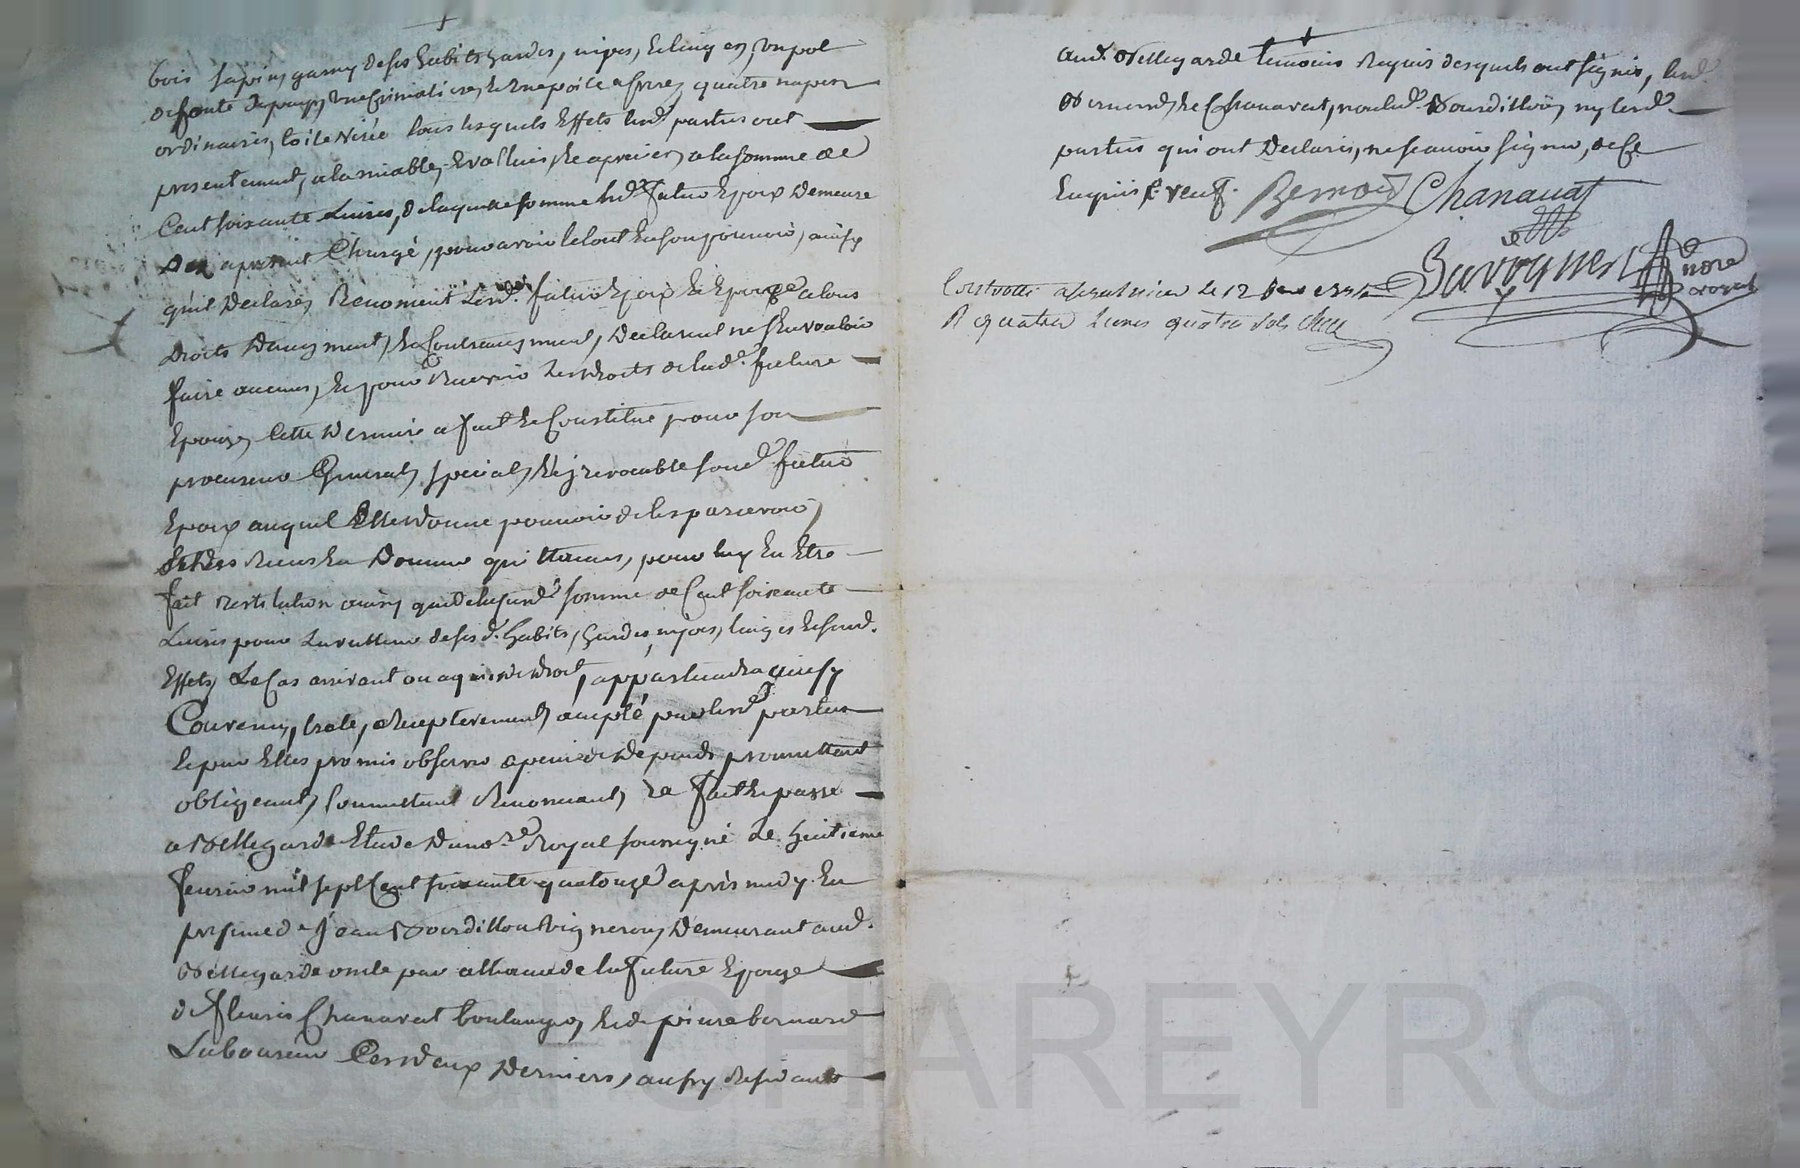 bois sapin garny de ses habits hardes, nipes, & linges, un pot
de fonte un cremaliere & une poile a frire, quatre napes
ordinaires, toile tous lesquels Effets lesd. parties ont
presentement a lamiable Evallués & apreciés a la somme de
Cent soixante Livres, de laquelle somme led. futur Epoux Demeure
apresent Chargé, pour avoir le tout En son pouvoir, ainsy
quil Declare, Renoncent Lesd. futur Epoux & Epouze a tous
droits Daugment, & Contreaugment, Declarent ne sen vouloir
faire aucuns, & pour Recevoir Les droits de lad. future
Epouze, Cette Derniere a fait & Constitué pour son
procureur General, special, & jrrevocable sond. futur
Epoux auquel Elle donne pouvoir de les parcevoir,
& des Recus En Donner quittances, pour luy En Etre
fait restitution ainsy que de lasusd. somme de Cent soixante
Livres pour La valleur de ses d. habits, hardes, nipes, linges & susd.
Effets Le Cas arrivant ou a qui de droit, appartiendra ainsy
Convenu, traité, & Reciproquement accepté par lesd. parties
& par Elles promis observer a peine de Depends promettant
obligeant, soumettant Renonceant, &a fait & passé
a Bellegarde Etude Du no.re Royal soussigné Le huitieme
fevrier mil sept Cent soixante quatorze apres midy En
presence de Jean Bourdillon vigneron Demeurant aud.
Bellegarde oncle par alliance de la future Epouze
de fleuris Chanavat boulanger, & de pierre bernard
Laboureur Ces deux Derniers, aussy Residants
aud. Bellegarde temoins Requis desquels ont signés, led.
Bernard & Chanavat, non led. Bourdillon, ny lesd.
parties qui ont Declarés, ne scavoir signer, de Ce
Enquis &
Bernard Chanavat
no.re royal
Controllé a le 12
R quatre Livres quatre sols
CHAREYRON